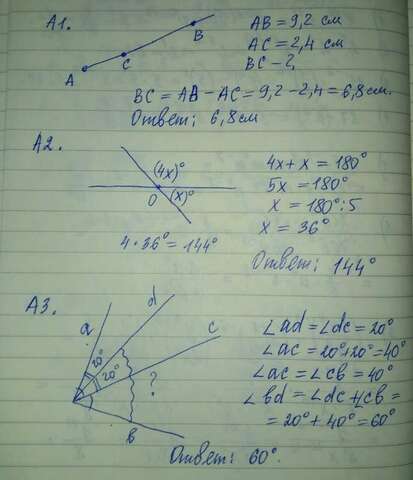 A1.
A C B
AB = 9,2 см
AC = 2,4 см
BC - ?
BC = AB - AC = 9,2 - 2,4 = 6,8 см.
Ответ: 6,8 см
A2.
(4x)°
O (x)°
4x + x = 180°
5x = 180°
x = 180° : 5
x = 36°
4 · 36° = 144°
Ответ: 144°
A3.
a d c
20° 20° ?
b
∠ad = ∠dc = 20°
∠ac = 20° + 20° = 40°
∠ac = ∠cb = 40°
∠bd = ∠dc + ∠cb =
= 20° + 40° = 60°
Ответ: 60°.